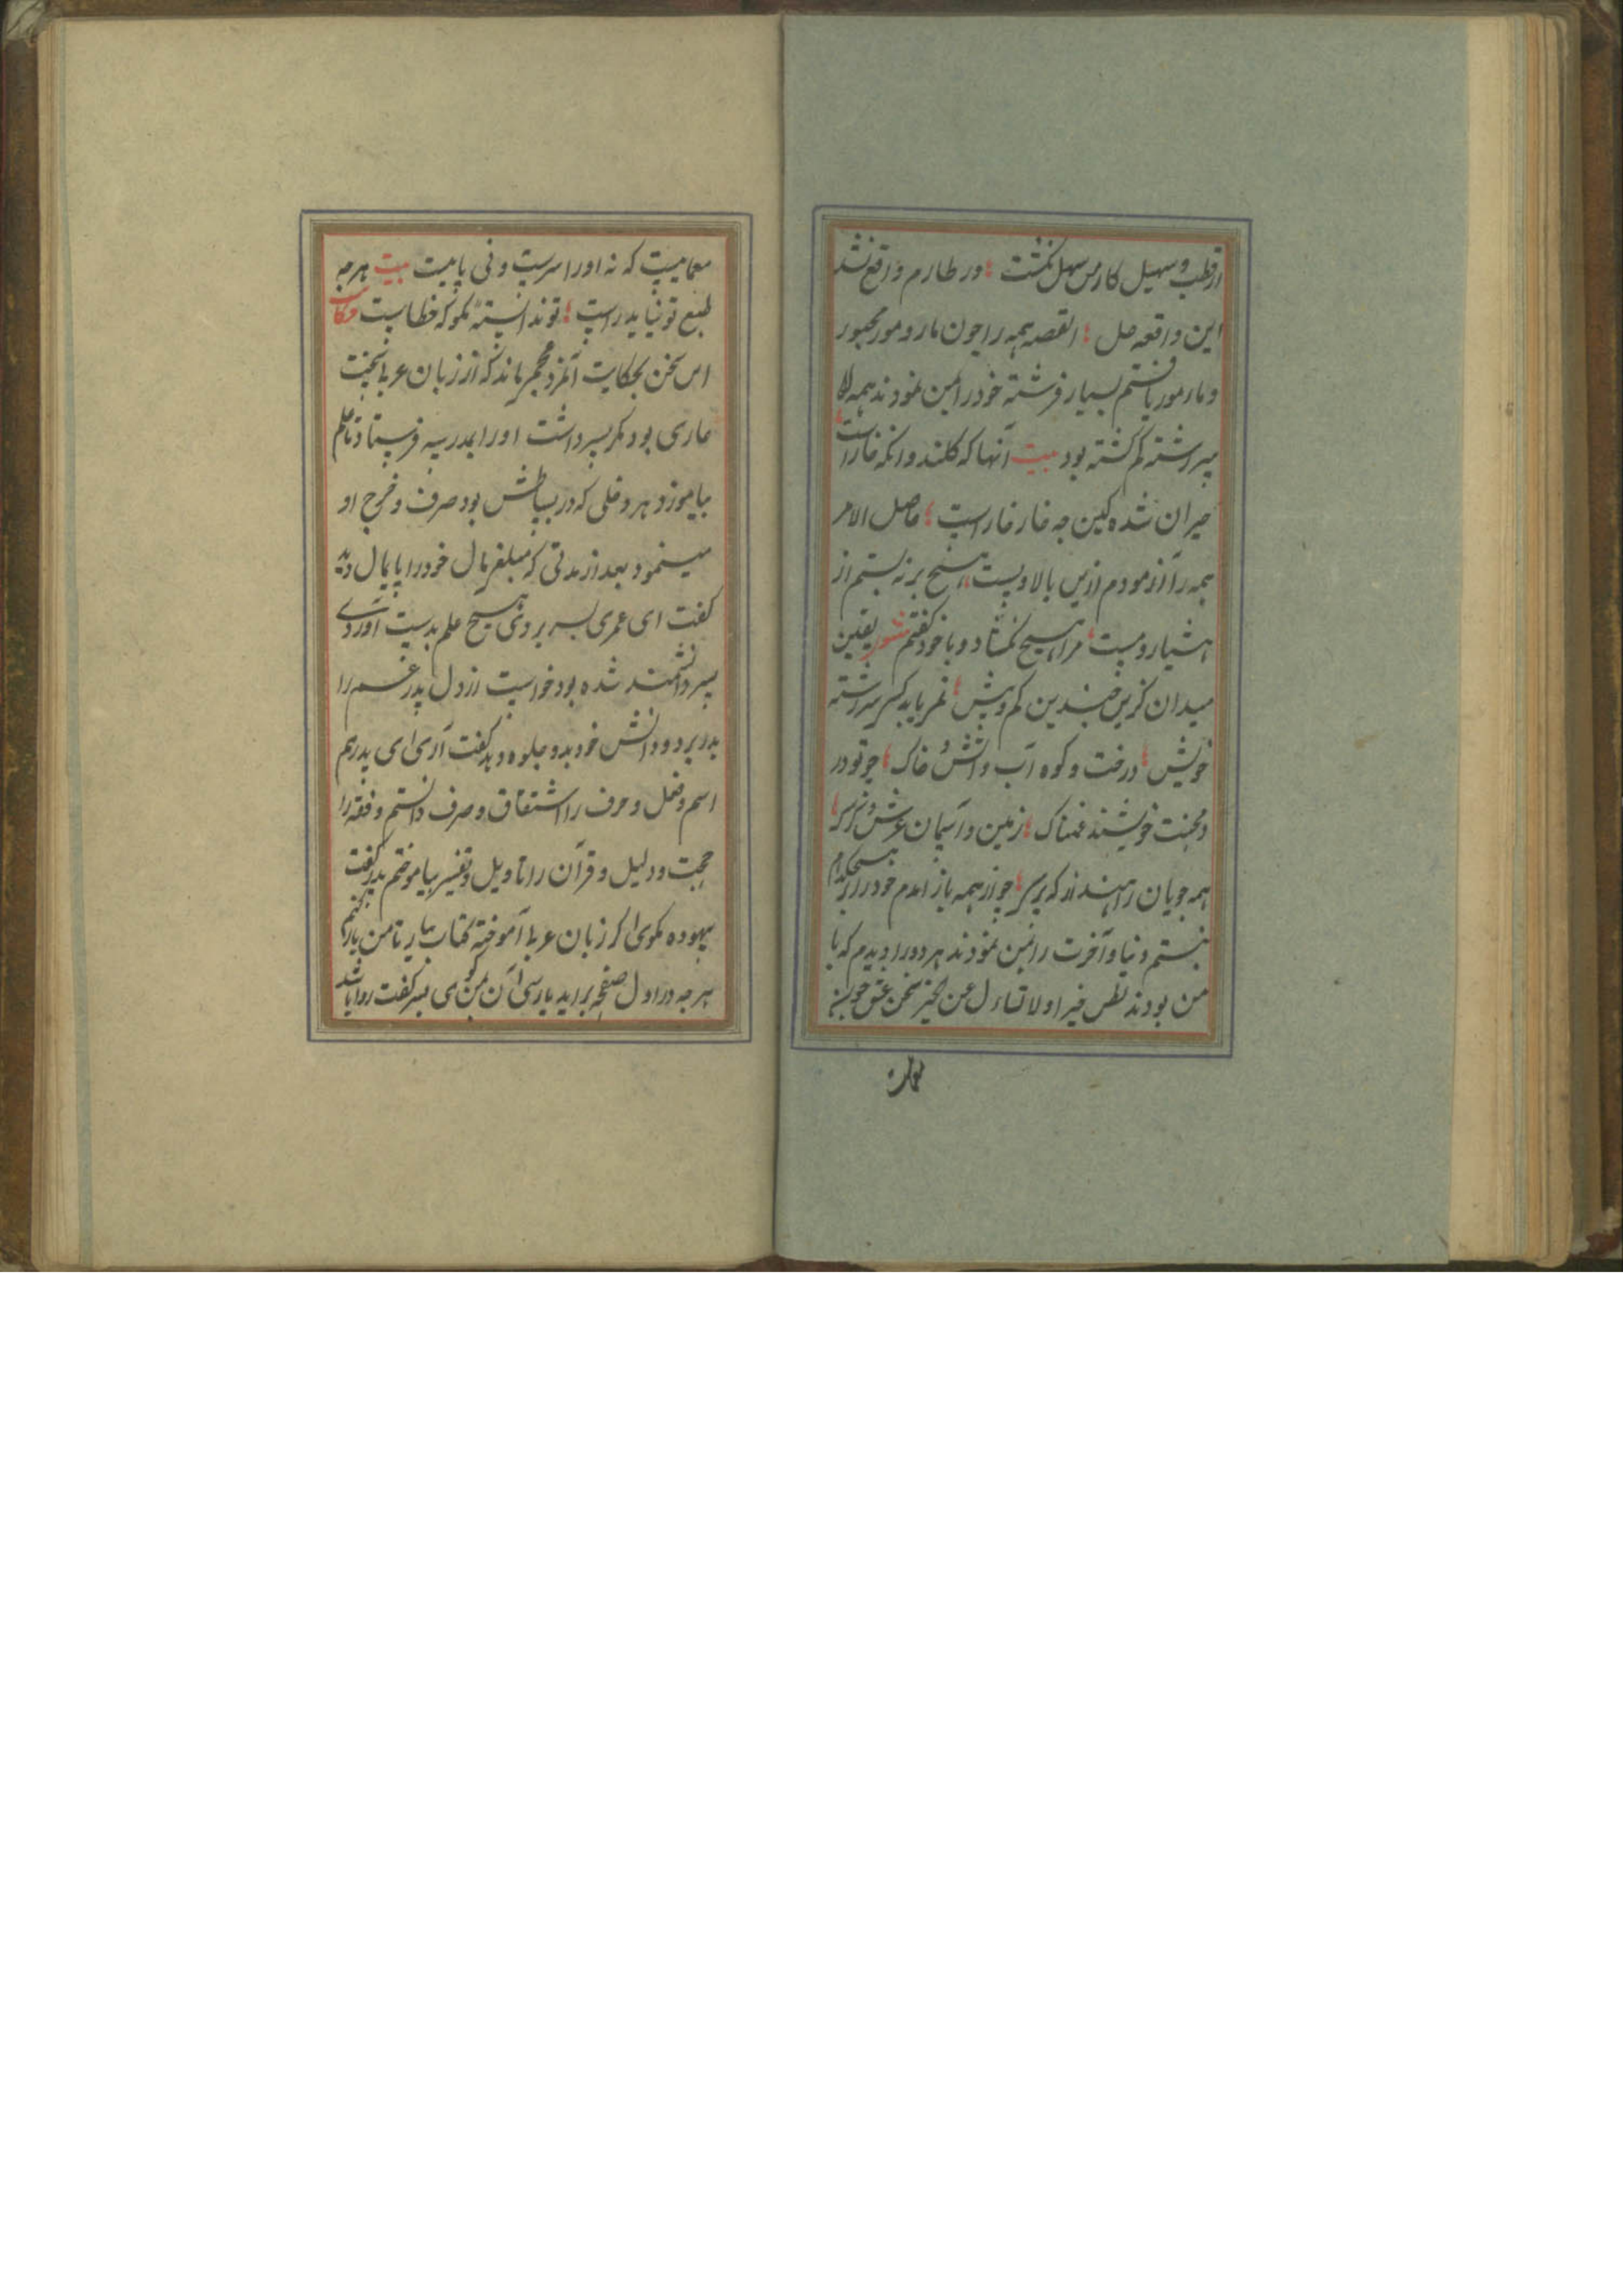 از قطب و سهیل کار من سهل نگشت ؛ ور طارم واقع نشد
این واقعه حل ؛ القصه همه را چون مار و مور مجبور
و مار مور یافتم بسیار فرشته خود را بمن نمودند همه را
سر رشته گم گشته بود بیت آنها که گلند وانکه خار است
حیران شده کین چه خار خار است ؛ حاصل الامر
همه را آزمودم از پس بالا و پست هیچ بر نه بستم از
هشیار و مست مرا هیچ نگشاد و با خود گفتم یقین
میدان کزین چندین کم و بیش ؛ نمی یابد کسی سر رشته
خویش ؛ درخت و کوه آب و آتش خاک ؛ چو تو در
محنت خویشند غمناک ؛ زمین و آسمان عرش و کرسی
همه جویان راهند از که پرسی ؛ چو از همه باز آمدم خود را
بستم دنیا و آخرت را بمن نمودند هر دو را دیدم که با
من بودند
معماییست که نه او را سریست و نی پاییت بیت هر چه
طبع تو نیاید راست ؛ تو ندانسته مگو که خطاست حکایت
این سخن بحکایت آنمرد ماند که از زبان عربی بخت
عاری بود مگر پسر داشت او را بمدرسه فرستاد تا علم
بیاموزد و هر دخلی که در بساطش بود صرف و خرج او
مینمود بعد از مدتی که مبلغی مال خود را پایمال دید
گفت ای عمری بسر بردی هیچ علم بدست آوردی
پسر دانشمند شده بود خواست از دل پدر غم را
بدر برد و دانش خود بدو جلوه دهد گفت آری ای پدر هم
اسم و فعل و حرف را اشتقاق و صرف دانستم و فقه را
حجت و دلیل و قرآن را تاویل و تفسیر بیاموختم پدر گفت
بیهوده مگوی اگر زبان عربی آموخته کتاب بیار تا من باز
هر چه در اول صفحه بر آید پارسی آن بمن گوی پسر گفت روا باشد